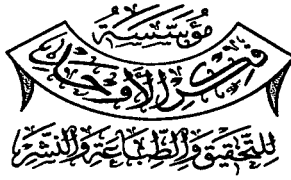 مُؤَسَّسَة
فِكْرِ الأَوْحَد
لِلتَّحقِيقِ وَالطِّبَاعَةِ وَالنَّشْرِ